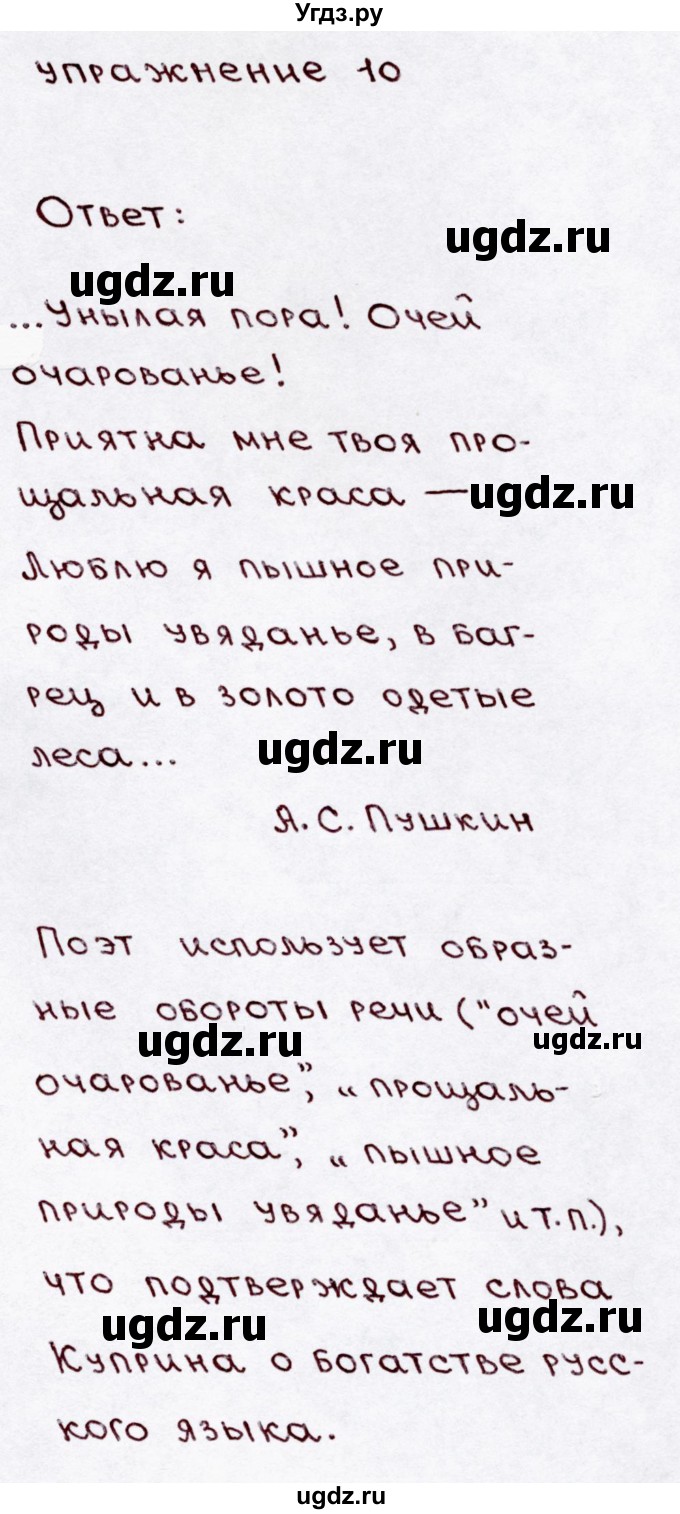 Угдз.ру
упражнение 10
Ответ:
ugdz.ru
ugdz.ru
...Унылая пора! Очей
очарованье!
Приятна мне твоя про-
щальная краса —
ugdz.ru
Люблю я пышное при-
роды увяданье, в баг-
рец и в золото одетые
леса...
ugdz.ru
А.С. Пушкин
Поэт использует образ-
ные обороты речи ("очей
ugdz.ru
ugdz.ru
очарованье", "прощаль-
ная краса", "пышное
природы увяданье" и т.п.),
что подтверждает слова
ugdz.ru
ugdz.ru
Куприна о богатстве русс-
кого языка.
ugdz.ru